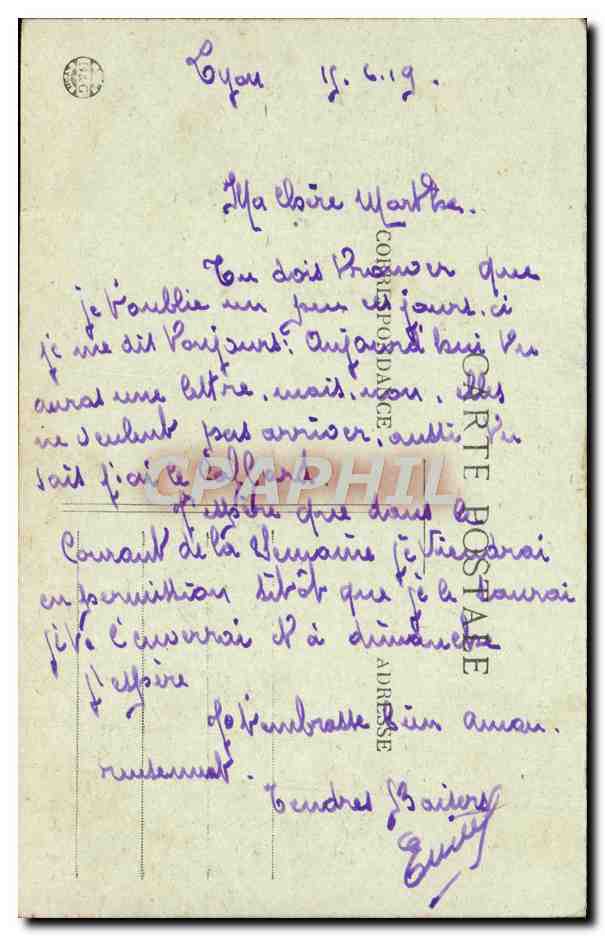 Lyon 15.6.19.
Ma Chère Marthe.
Tu dois trouver que
je t'oublie un peu ces jours. ci
je me dit toujours: aujourd'hui tu
auras une lettre, mais, non, elles
ne veulent pas arriver, aussi tu
sais j'ai le caffard.
J'espère que dans le
Courant de la semaine je viendrai
en permission sitôt que je le saurai
je te l'enverrai à dimanche
j'espère
Je t'embrasse bien amou
reusement.
Tendres Baisers
Emile
CORRESPONDANCE
CARTE POSTALE
ADRESSE
CPAPHIL